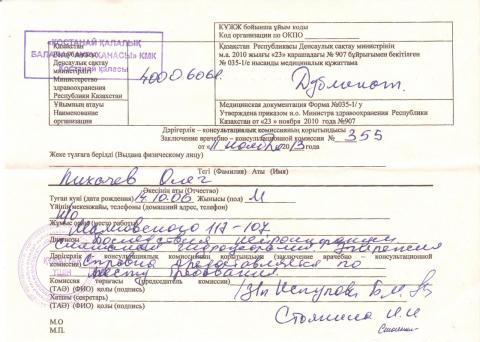 «ҚОСТАНАЙ ҚАЛАЛЫҚ
КМҚК
Қостанай қаласы
Қазақстан
Республикасы
Денсаулық сақтау
министрлігі
Министерство
здравоохранения
Республики Казахстан
40006061.
КҰЖЖ бойынша ұйым коды
Код организации по ОКПО
Қазақстан Республикасы Денсаулық сақтау министрінің
м.а. 2010 жылғы «23» қарашадағы № 907 бұйрығымен бекітілген
№ 035-1/е нысанды медициналық құжаттама
Дубликат.
Ұйымның атауы
Наименование
организация
Медицинская документация Форма №035-1/ у
Утверждена приказом и.о. Министра здравоохранения Республики
Казахстан от «23» ноября 2010 года №907
Дәрігерлік – консультациялық комиссияның қорытындысы
Заключение врачебно – консультационной комиссии № 355
от « 11 ноября 2013 года
Жеке тұлғаға берілді (Выдана физическому лицу)
Тегі (Фамилия) Аты (Имя)
Лихачев Олег
Әкесінің аты (Отчество)
Туған күні (дата рождения) 14.10.06 Жынысы (пол) М
Үйінің мекенжайы, телефоны (домашний адрес, телефон)
Н/О
Жұмыс орны (место работы)
Маяковского 117-107
Диагнозы Последствия нейроинфекции
Дәрігерлік – консультациялық комиссиясының қорытындысы (заключение врачебно – консультационной
комиссии) Справка представляется по
месту требования.
Комиссия төрағасы (председатель комиссии)
(ТАӘ) (ФИО) қолы (подпись)
Хатшы (секретарь)
(ТАӘ) (ФИО) қолы (подпись)
М.О
М.П.